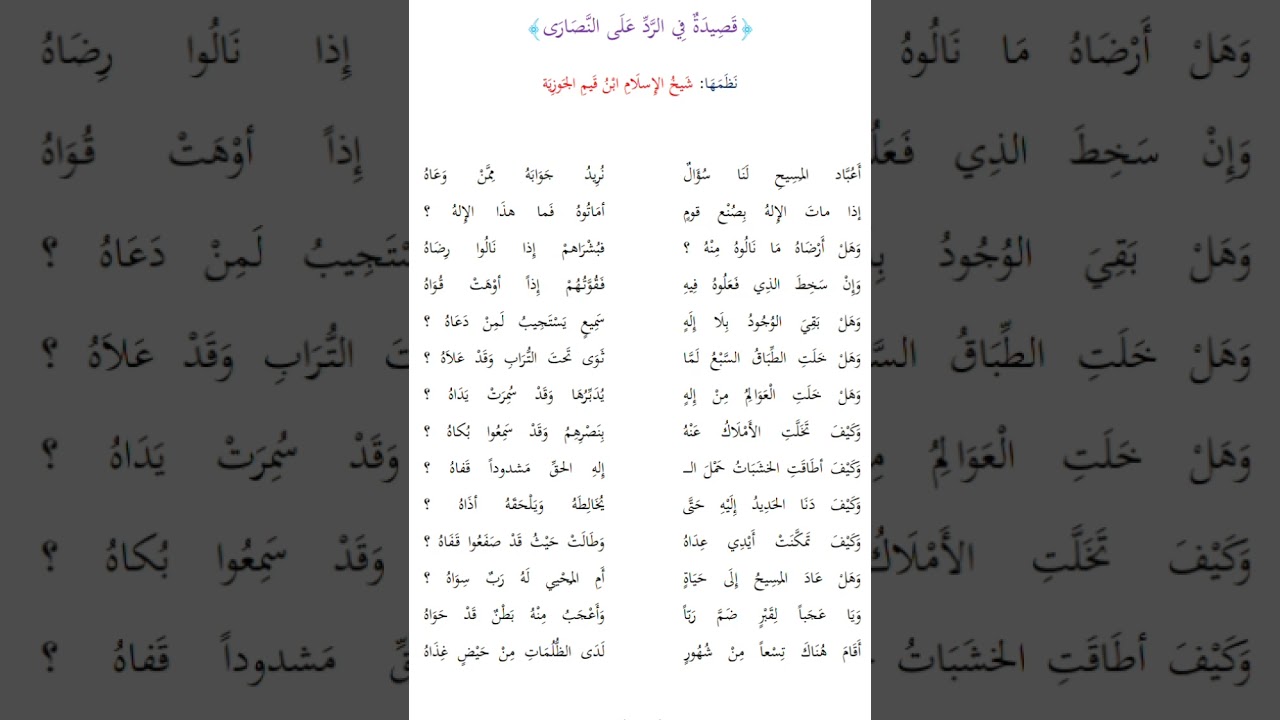 ﴿قَصِيدَةٌ فِي الرَّدِّ عَلَى النَّصَارَى﴾
نَظَمَهَا: شَيخُ الإِسلَامِ ابْنُ قَيمِ الجَوزِيَة
أَعُبَّاد المَسِيحِ لَنَا سُؤَالٌ نُرِيدُ جَوَابَهُ مِمَّنْ وَعَاهُ
إذا ماتَ الإِلهُ بِصُنْع قومٍ أمَاتُوهُ فَما هذَا الإِلهُ ؟
وَهَلْ أَرْضَاهُ مَا نَالُوهُ مِنْهُ ؟ فبُشْرَاهمْ إِذا نَالُوا رِضَاهُ
وَإِنْ سَخِطَ الذِي فَعَلُوهُ فِيهِ فَقُوَّتُهُمْ إِذاً أوْهَتْ قُوَاهُ
وَهَلْ بَقِيَ الوُجُودُ بِلَا إِلَهٍ سَمِيعٍ يَسْتَجِيبُ لَمِنْ دَعَاهُ ؟
وَهَلْ خَلَتِ الطِّبَاقُ السَّبْعُ لَمَّا ثَوَى تَحْتَ التُّرَابِ وَقَدْ عَلاَهُ ؟
وَهَلْ خَلَتِ الْعَوَالِمُ مِنْ إِلهٍ يُدَبِّرُهَا وَقَدْ سُمِرَتْ يَدَاهُ ؟
وَكَيْفَ تَخَلَّتِ الأَمْلَاكُ عَنْهُ بِنَصْرِهِمُ وَقَدْ سَمِعُوا بُكاهُ ؟
وَكَيْفَ أطَاقَتِ الخشَبَاتُ حَمْلَ الـ إِلهِ الحقِّ مَشدوداً قَفاهُ ؟
وَكَيْفَ دَنَا الحَدِيدُ إِلَيْهِ حَتَّى يُخَالِطَهُ وَيَلْحَقَهُ أذَاهُ ؟
وَكَيْفَ تَمكَّنَتْ أَيْدِي عِدَاهُ وَطَالَتْ حَيْثُ قَدْ صَفَعُوا قَفَاهُ ؟
وَهَلْ عَادَ المَسِيحُ إِلَى حَيَاةٍ أَمِ المحْيي لَهُ رَبٌ سِوَاهُ ؟
وَيَا عَجَباً لِقَبْرٍ ضَمَّ رَبّاً وَأَعْجَبُ مِنْهُ بَطْنٌ قَدْ حَوَاهُ
أَقَامَ هُنَاكَ تِسْعاً مِنْ شُهُورٍ لَدَى الظُّلُمَاتِ مِنْ حَيْضٍ غِذَاهُ